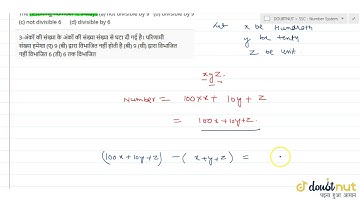 (c) not divisible 6 (d) divisible by 6
3-अंकों की संख्या के अंकों की संख्या संख्या से घटा दी गई है। परिणामी
संख्या हमेशा (ए) 9 (बी) द्वारा विभाजित नहीं होती है (बी) 9 (सी) द्वारा विभाजित
नहीं विभाजित 6 (डी) 6 तक विभाजित
DOUBTNUT > SSC : Number System
Let x be Hundredth
y be tenty
z be unit.
xyz.
Number = 100xx + 10y + z
= 100x+10y+z.
(100x+10y+z) - (x+y+z) =
doubtnut